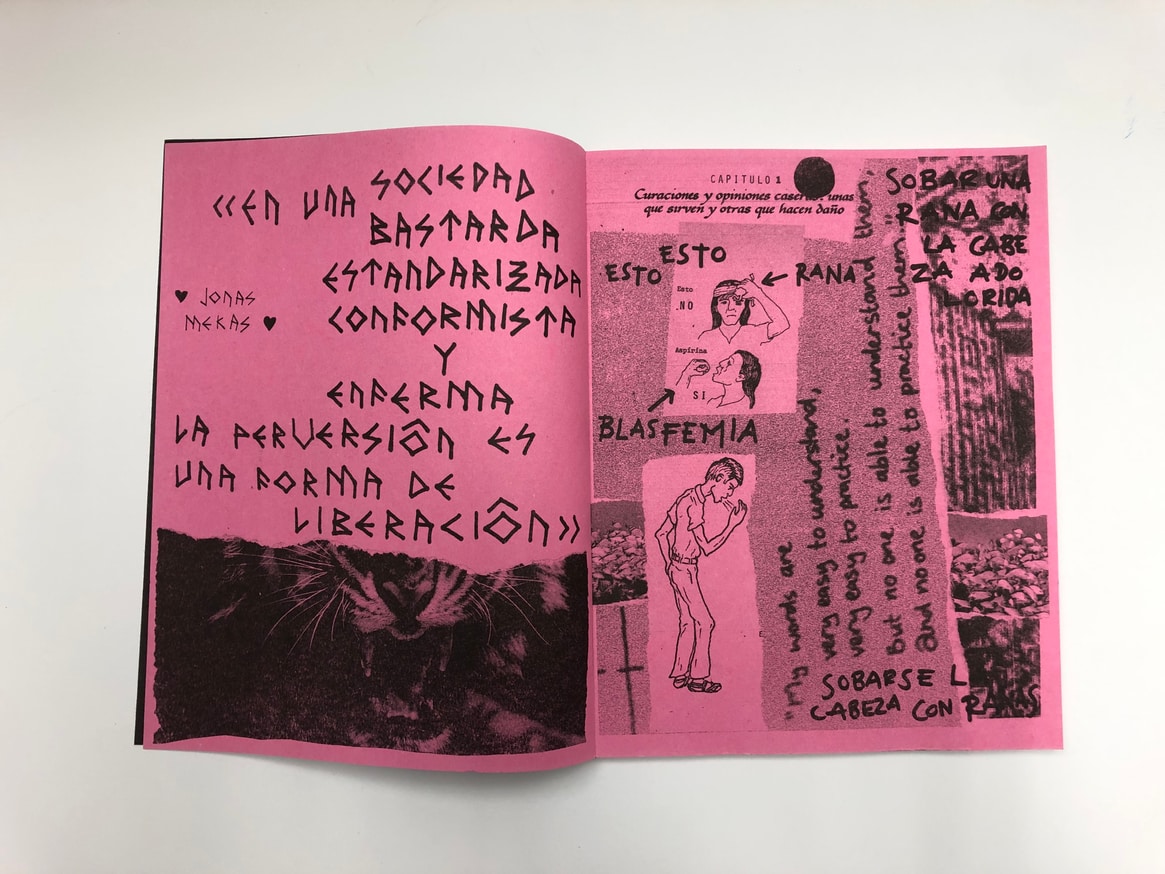 «EN UNA SOCIEDAD
BASTARDA
ESTANDARIZADA
CONFORMISTA
Y
ENFERMA
LA PERVERSIÔN ES
UNA FORMA DE
LIBERACIÔN»
♥ JONAS
MEKAS ♥
CAPITULO 1
Curaciones y opiniones caseras: unas
que sirven y otras que hacen daño
ESTO ESTO
Esto
NO
RANA
Aspirina
SI
BLASFEMIA
"My words are
very easy to understand,
very easy to practice.
But no one is able to understand them,
and no one is able to practice them."
SOBAR UNA
RANA CON
LA CABE
ZA ADO
LORIDA
SOBARSE L
CABEZA CON RANAS